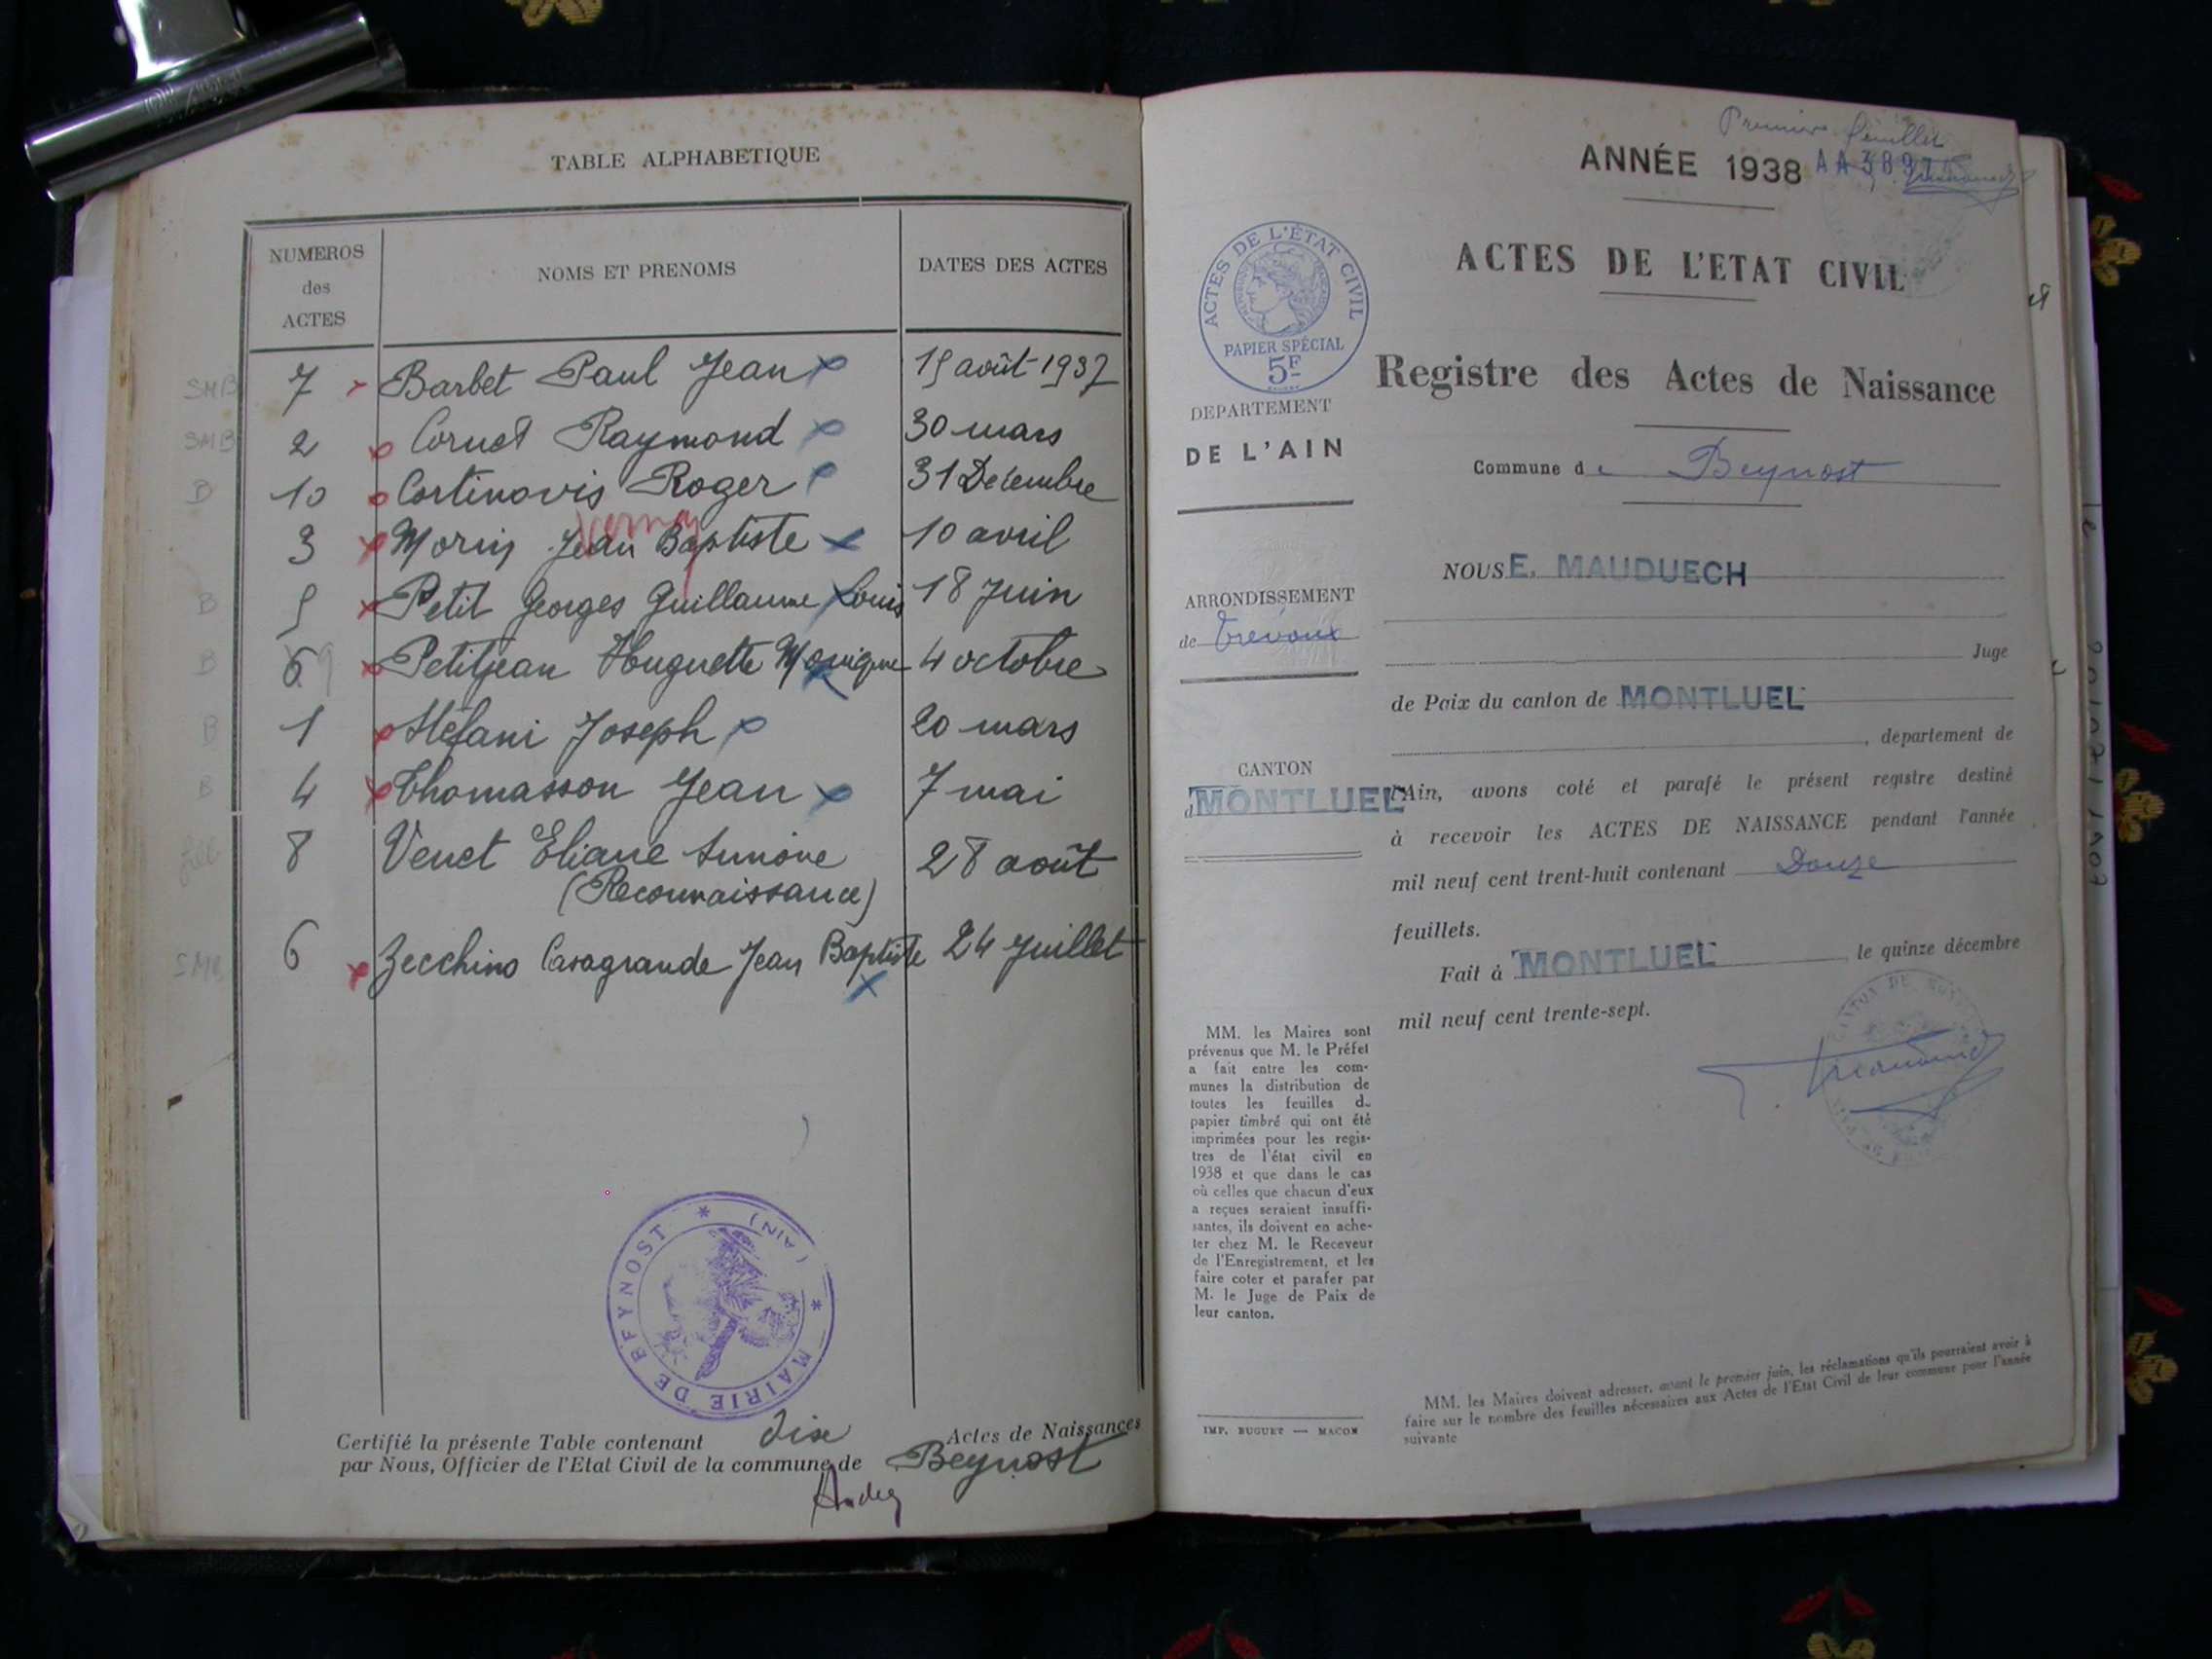 TABLE ALPHABETIQUE
NUMEROS
des
ACTES
NOMS ET PRENOMS
DATES DES ACTES
SMB 7 Barbet Paul Jean 15 août 1937
SMB 2 Cornet Raymond 30 mars
B 10 Cortinovis Roger 31 Décembre
3 Morin Jean Baptiste 10 avril
B 5 Petit Georges Guillaume Louis 18 Juin
B 9 Petitjean Huguette Monique 4 octobre
B 1 Stefani Joseph 20 mars
B 4 Thomasson Jean 7 mai
8 Venet Eliane Simone 28 août
(Reconnaissance)
SMB 6 Zecchino Casagrande Jean Baptiste 24 Juillet
MAIRIE DE BEYNOST * (AIN) *
Certifié la présente Table contenant dix Actes de Naissances
par Nous, Officier de l'Etat Civil de la commune de Beynost
Premier feuillet
ANNÉE 1938
ACTES DE L'ETAT CIVIL
ACTES DE L'ÉTAT CIVIL
PAPIER SPÉCIAL
5F
Registre des Actes de Naissance
DEPARTEMENT
DE L'AIN
Commune de Beynost
NOUS E. MAUDUECH
ARRONDISSEMENT
de Trévoux
Juge
de Paix du canton de MONTLUEL
, département de
CANTON
d MONTLUEL
l'Ain, avons coté et parafé le présent registre destiné
à recevoir les ACTES DE NAISSANCE pendant l'année
mil neuf cent trent-huit contenant Douze
feuillets.
Fait à MONTLUEL, le quinze décembre
mil neuf cent trente-sept.
MM. les Maires sont
prévenus que M. le Préfet
a fait entre les com-
munes la distribution de
toutes les feuilles de
papier timbré qui ont été
imprimées pour les regis-
tres de l'état civil en
1938 et que dans le cas
où celles que chacun d'eux
a reçues seraient insuffi-
santes, ils doivent en ache-
ter chez M. le Receveur
de l'Enregistrement, et les
faire coter et parafer par
M. le Juge de Paix de
leur canton.
IMP. BUGUET — MACON
MM. les Maires doivent adresser, avant le premier juin, les réclamations qu'ils pourraient avoir à
faire sur le nombre des feuilles nécessaires aux Actes de l'Etat Civil de leur commune pour l'année
suivante